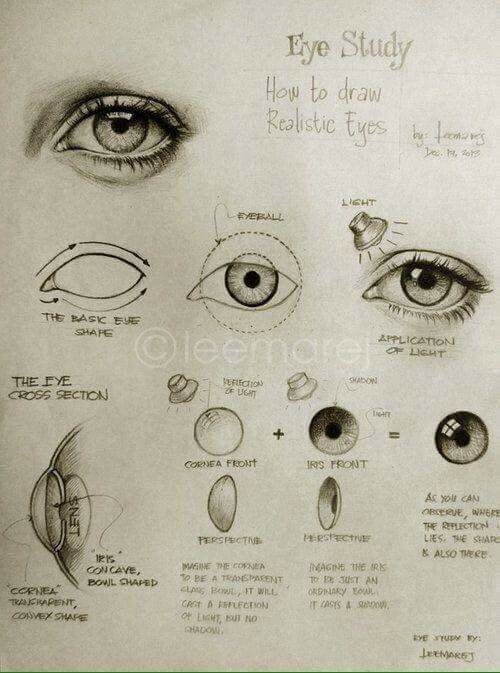 Eye Study
How to draw
Realistic Eyes
by: leemarej
Dec. 19, 2013
EYEBALL
LIGHT
THE BASIC EYE
SHAPE
APPLICATION
OF LIGHT
©leemarej
THE EYE
CROSS SECTION
REFLECTION
OF LIGHT
SHADOW
LIGHT
CORNEA FRONT
+
IRIS FRONT
=
PERSPECTIVE
PERSPECTIVE
LENS
"IRIS"
CONCAVE,
BOWL SHAPED
"CORNEA"
TRANSPARENT,
CONVEX SHAPE
IMAGINE THE CORNEA
TO BE A TRANSPARENT
GLASS BOWL, IT WILL
CAST A REFLECTION
OF LIGHT, BUT NO
SHADOW.
IMAGINE THE IRIS
TO BE JUST AN
ORDINARY BOWL.
IT CASTS A SHADOW.
AS YOU CAN
OBSERVE, WHERE
THE REFLECTION
LIES, THE SHADO
IS ALSO THERE.
EYE STUDY BY:
LEEMAREJ